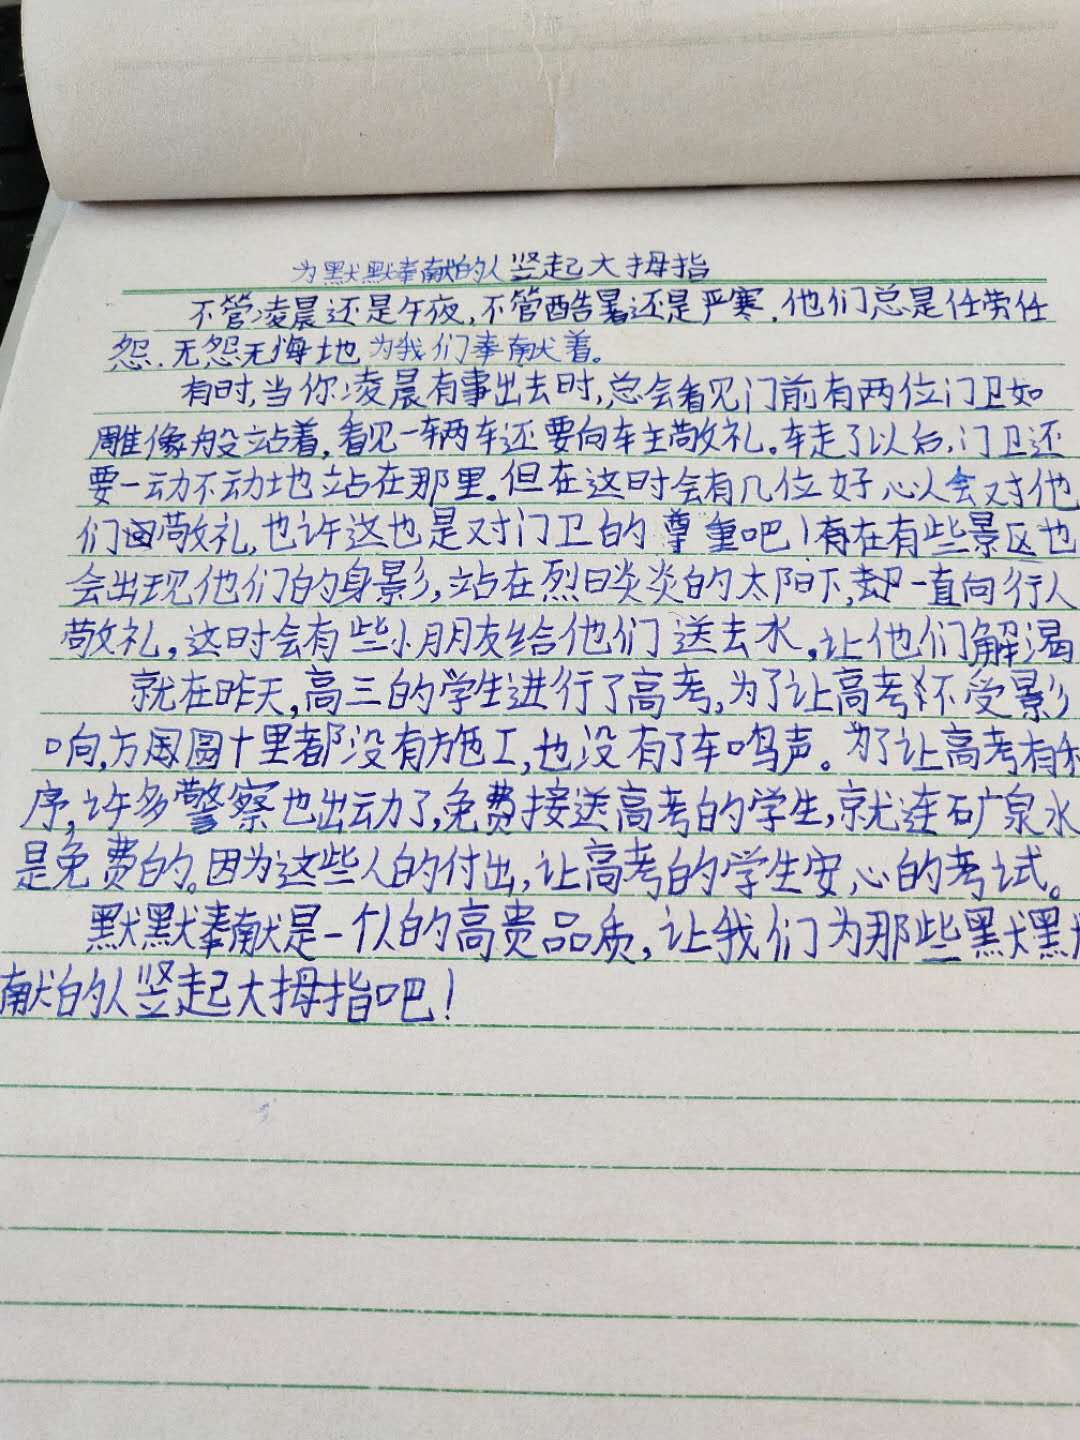 为默默奉献的人竖起大拇指
不管凌晨还是午夜,不管酷暑还是严寒,他们总是任劳任
怨、无怨无悔地为我们奉献着。
有时,当你凌晨有事出去时,总会看见门前有两位门卫如
雕像般站着,看见一辆车还要向车主敬礼。车走了以后,门卫还
要一动不动地站在那里。但在这时会有几位好心人会对他
们回敬礼,也许这也是对门卫的尊重吧!在有些景区也
会出现他们的身影,站在烈日炎炎的太阳下,却一直向行人
敬礼,这时会有些小朋友给他们送去水,让他们解渴
就在昨天,高三的学生进行了高考,为了让高考不受影
响,方圆十里都没有施工,也没有了车鸣声。为了让高考有秩
序,许多警察也出动了,免费接送高考的学生,就连矿泉水
是免费的。因为这些人的付出,让高考的学生安心的考试。
默默奉献是一个人的高贵品质,让我们为那些默默
献的人竖起大拇指吧!